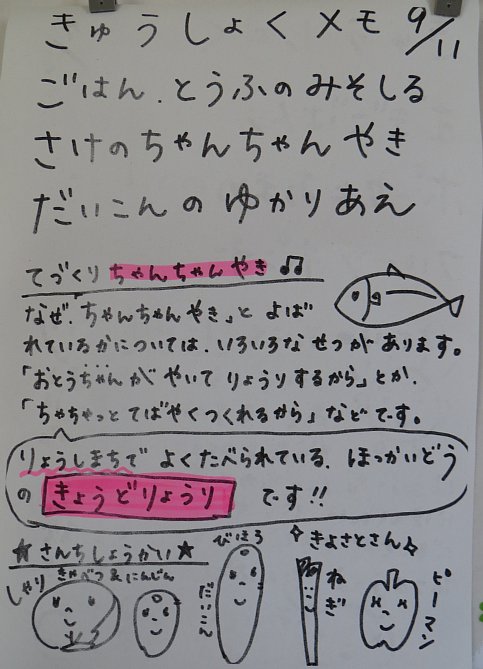 きゅうしょくメモ 9/11
ごはん.とうふのみそしる
さけのちゃんちゃんやき
だいこんのゆかりあえ
てづくりちゃんちゃんやき♫
なぜ.ちゃんちゃんやき」とよば
れているかについては.いろいろなせつがあります。
「おとうちゃんがやいてりょうりするから」とか.
「ちゃちゃっとてばやくつくれるから」などです。
りょうしまちでよくたべられている.ほっかいどう
のきょうどりょうりです!!
★さんちしょうかい★
しゃり
きゃべつ&にんじん
びほろ
だいこん
✧きよさとさん✧
ねぎ
ピーマン